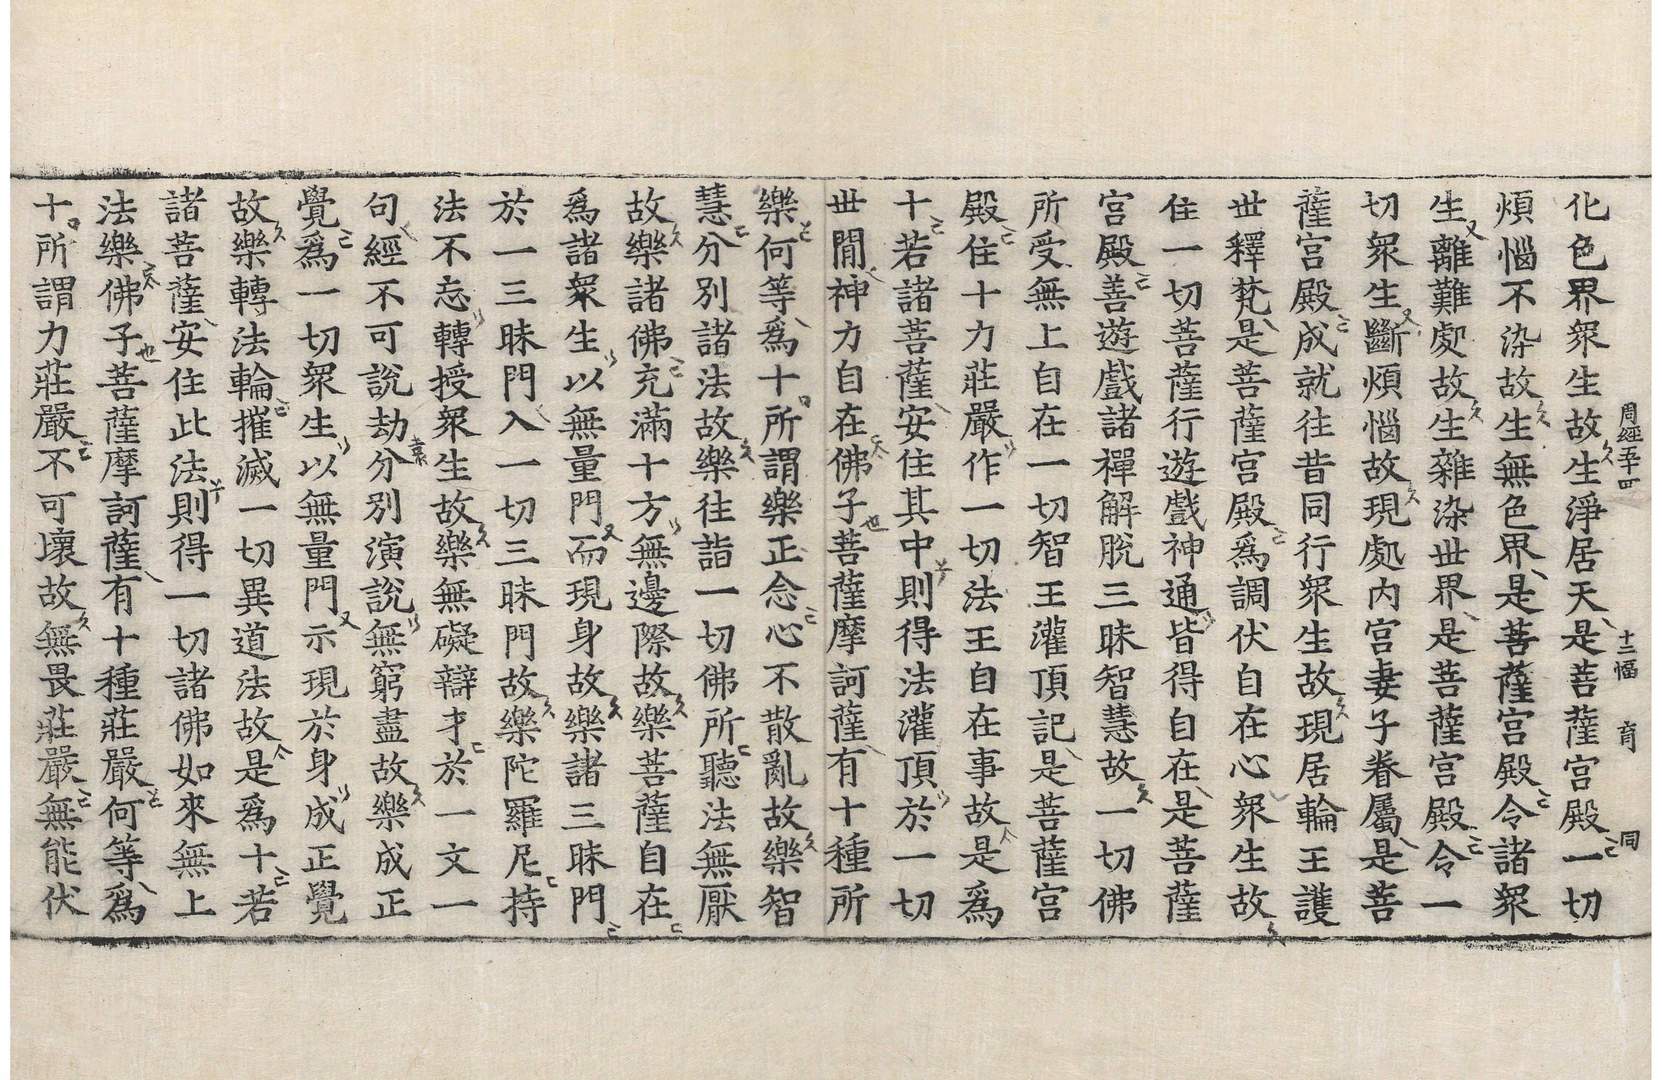 周經五十四 十三幅 育 同
化色界眾生故生淨居天是菩薩宮殿一切
煩惱不染故生無色界是菩薩宮殿令諸眾
生離難處故生雜染世界是菩薩宮殿令一
切眾生斷煩惱故現處內宮妻子眷屬是菩
薩宮殿成就往昔同行眾生故現居輪王護
世釋梵是菩薩宮殿爲調伏自在心眾生故
住一切菩薩行遊戲神通皆得自在是菩薩
宮殿善遊戲諸禪解脫三昧智慧故一切佛
所受無上自在一切智王灌頂記是菩薩宮
殿住十力莊嚴作一切法王自在事故是爲
十若諸菩薩安住其中則得法灌頂於一切
世間神力自在佛子菩薩摩訶薩有十種所
樂何等爲十所謂樂正念心不散亂故樂智
慧分別諸法故樂往詣一切佛所聽法無厭
故樂諸佛充滿十方無邊際故樂菩薩自在
爲諸眾生以無量門而現身故樂諸三昧門
於一三昧門入一切三昧門故樂陀羅尼持
法不忘轉授眾生故樂無礙辯才於一文一
句經不可說劫分別演說無窮盡故樂成正
覺爲一切眾生以無量門示現於身成正覺
故樂轉法輪摧滅一切異道法故是爲十若
諸菩薩安住此法則得一切諸佛如來無上
法樂佛子菩薩摩訶薩有十種莊嚴何等爲
十所謂力莊嚴不可壞故無畏莊嚴無能伏